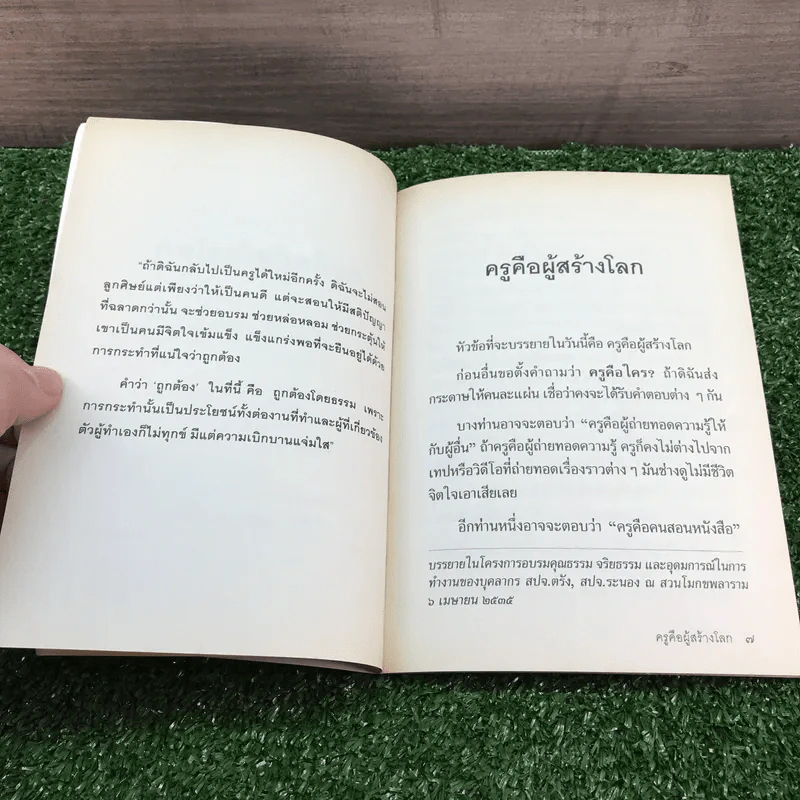 "ถ้าดิฉันกลับไปเป็นครูได้ใหม่อีกครั้ง ดิฉันจะไม่สอน
ลูกศิษย์แต่เพียงว่าให้เป็นคนดี แต่จะสอนให้มีสติปัญญา
ที่ฉลาดกว่านั้น จะช่วยอบรม ช่วยหล่อหลอม ช่วยกระตุ้นให้
เขาเป็นคนมีจิตใจเข้มแข็ง แข็งแกร่งพอที่จะยืนอยู่ได้ด้วย
การกระทำที่แน่ใจว่าถูกต้อง
คำว่า 'ถูกต้อง' ในที่นี้ คือ ถูกต้องโดยธรรม เพราะ
การกระทำนั้นเป็นประโยชน์ทั้งต่องานที่ทำและผู้ที่เกี่ยวข้อง
ตัวผู้ทำเองก็ไม่ทุกข์ มีแต่ความเบิกบานแจ่มใส"
ครูคือผู้สร้างโลก
หัวข้อที่จะบรรยายในวันนี้คือ ครูคือผู้สร้างโลก
ก่อนอื่นขอตั้งคำถามว่า ครูคือใคร? ถ้าดิฉันส่ง
กระดาษให้คนละแผ่น เชื่อว่าคงจะได้รับคำตอบต่าง ๆ กัน
บางท่านอาจจะตอบว่า "ครูคือผู้ถ่ายทอดความรู้ให้
กับผู้อื่น" ถ้าครูคือผู้ถ่ายทอดความรู้ ครูก็คงไม่ต่างไปจาก
เทปหรือวิดีโอที่ถ่ายทอดเรื่องราวต่าง ๆ มันช่างดูไม่มีชีวิต
จิตใจเอาเสียเลย
อีกท่านหนึ่งอาจจะตอบว่า "ครูคือคนสอนหนังสือ"
บรรยายในโครงการอบรมคุณธรรม จริยธรรม และอุดมการณ์ในการ
ทำงานของบุคลากร สปจ.ตรัง, สปจ.ระนอง ณ สวนโมกขพลาราม
๖ เมษายน ๒๕๓๕
ครูคือผู้สร้างโลก ๗